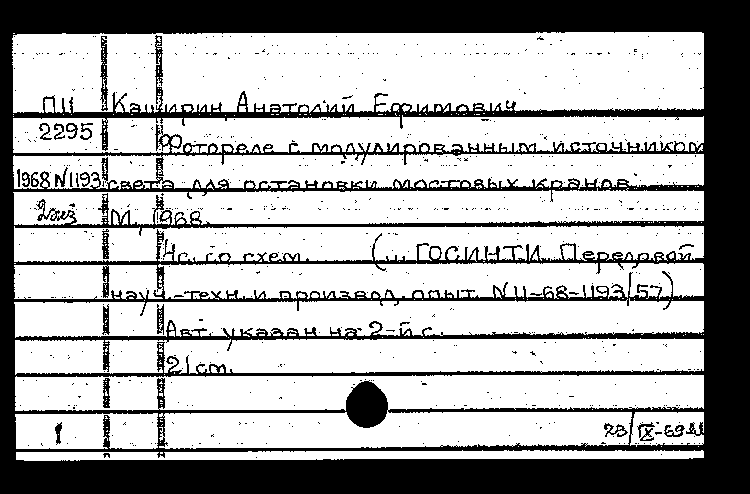 ПЦ Каширин, Анатолий Ефимович
2295 Фотореле с модулированным источником
1968 N1193 света для остановки мостовых кранов.
2экз М., 1968.
4с. со схем. (... ГОСИНТИ. Передовой
науч.-техн. и производ. опыт. N 11-68-1193/57)
Авт. указан на 2-й с.
21 см.
1 23/IX-69